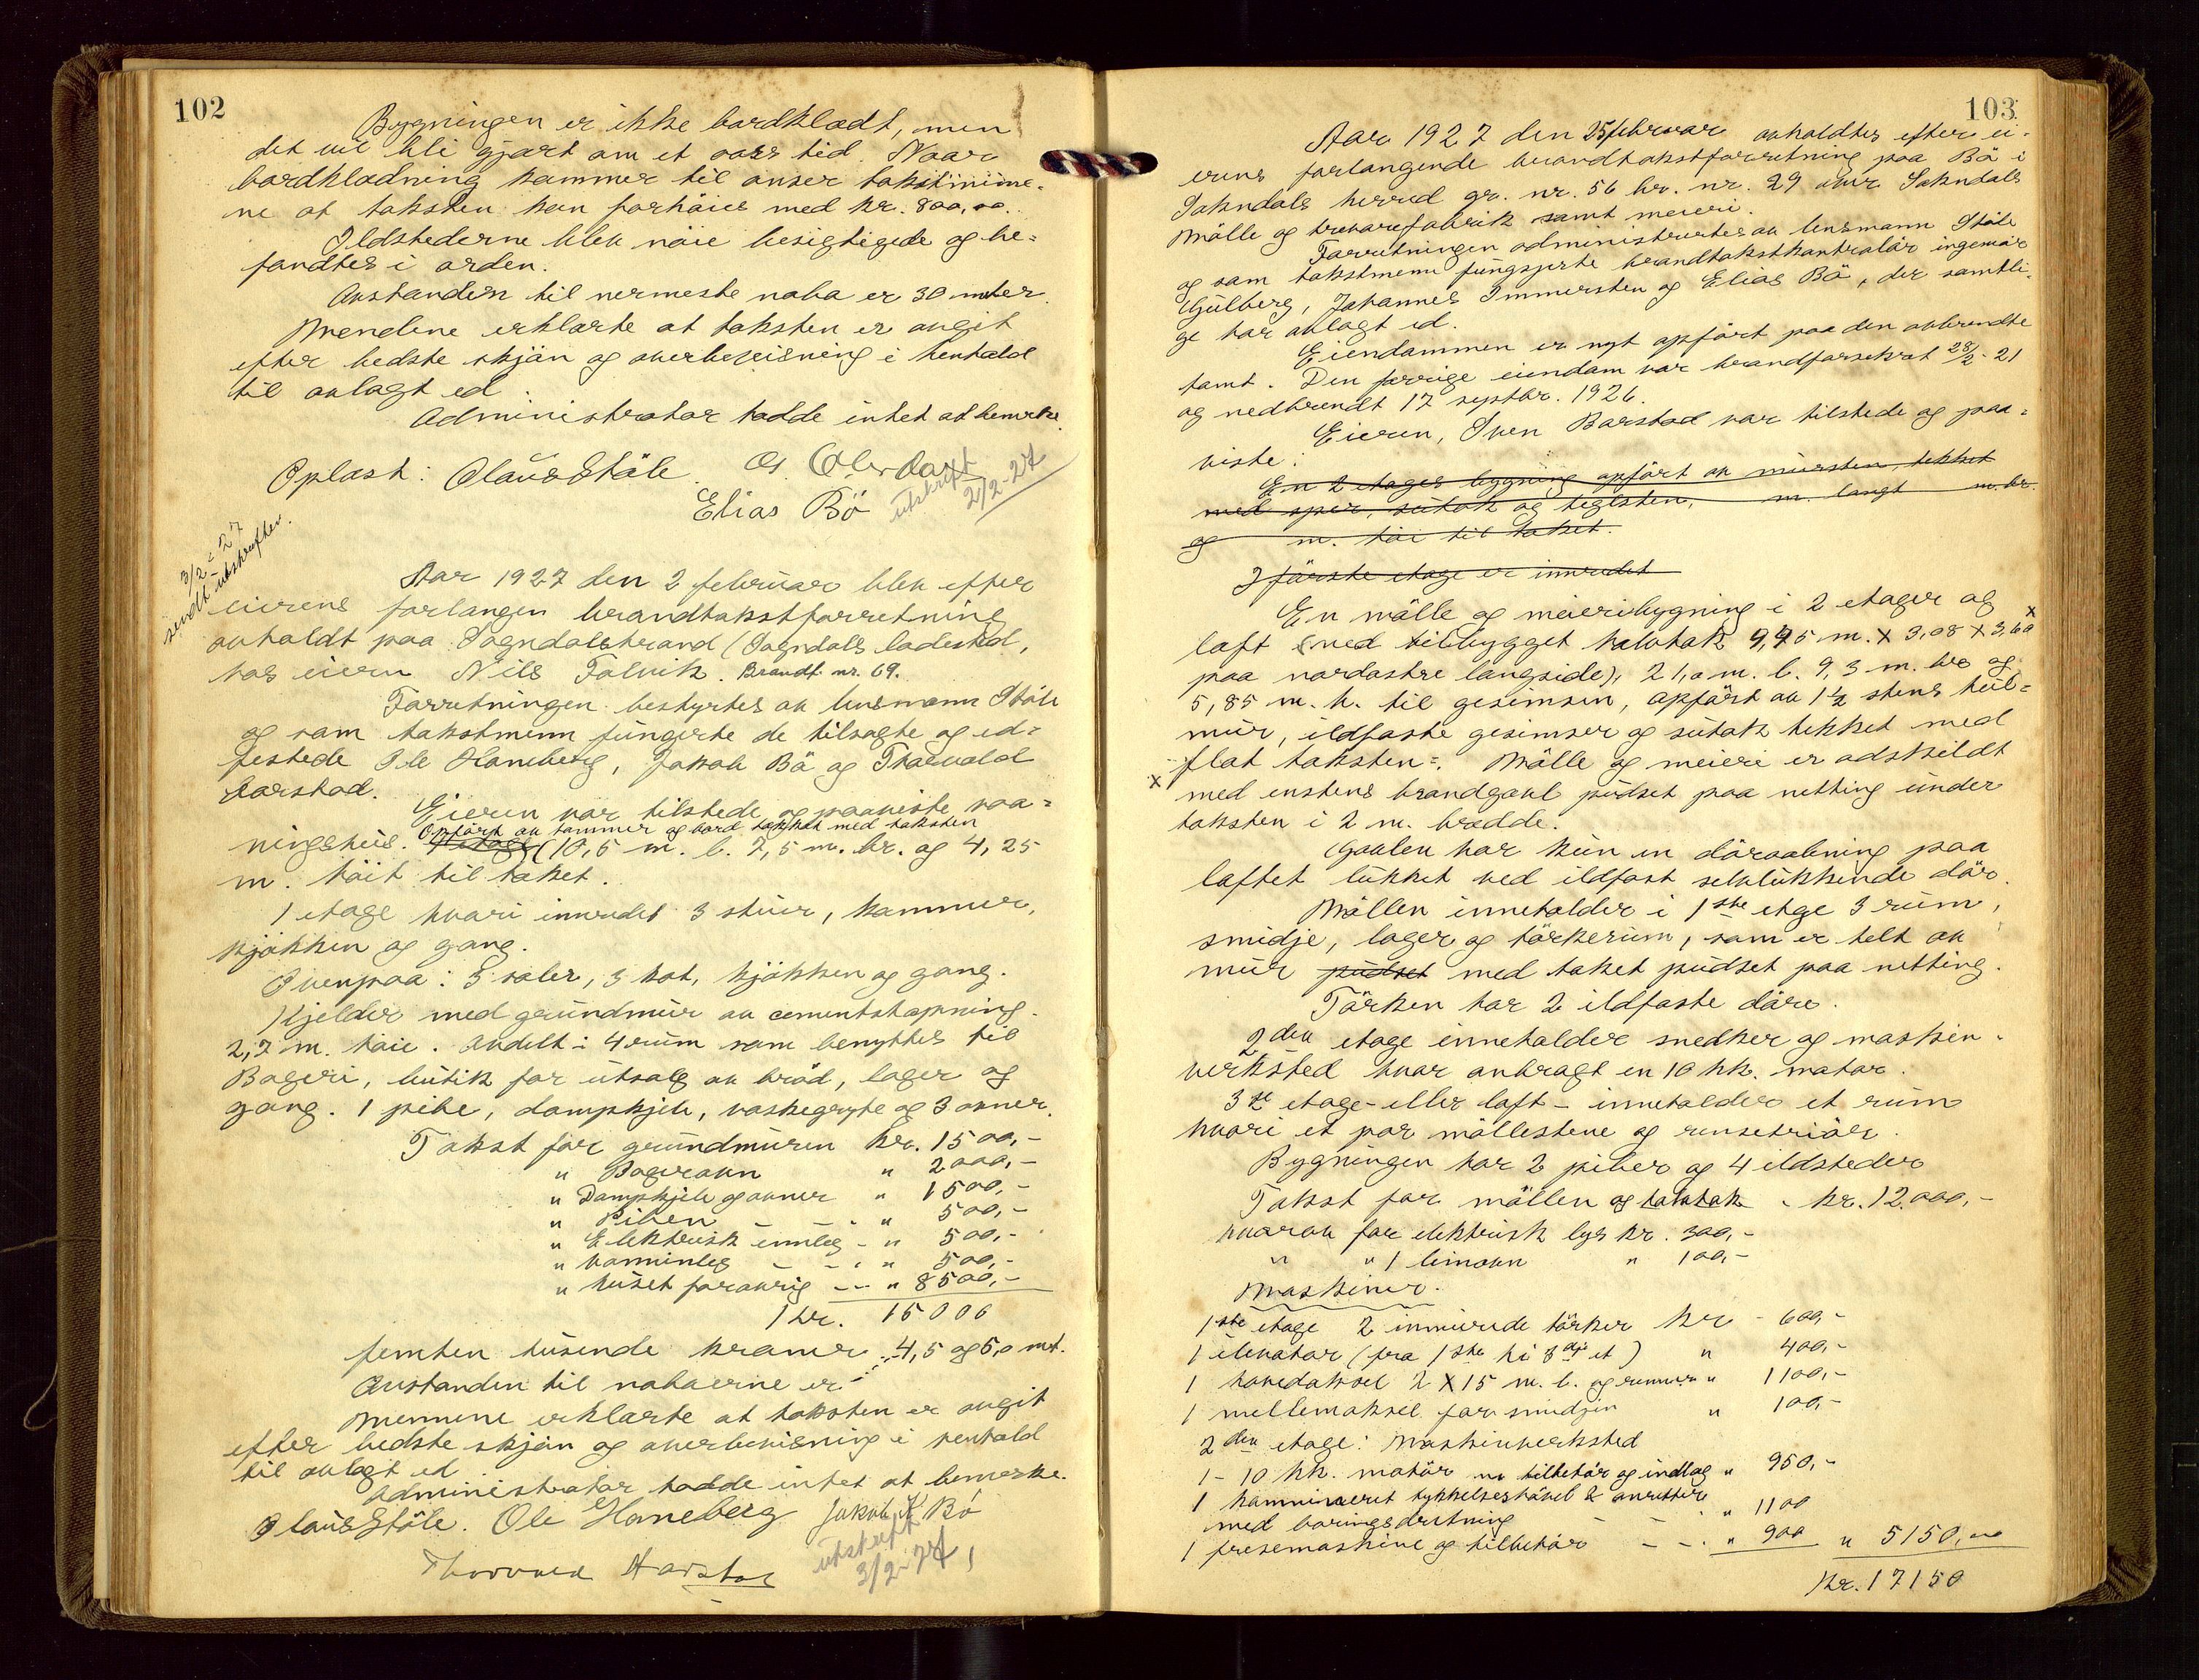 102
Bygningen er ikke bordklædt, men
det vil bli gjort om et aars tid. Naar
bordklædning kommer til anser takstminime-
ne at taksten kan forhöies med kr. 800,00.
Ildstederne blev nöie besigtigede og be-
fandtes i orden.
Avstanden til nermeste nabo er 30 meter.
Mendene erklærte at taksten er avgit
efter bedste skjön og overbevisning i henhold
til avlagt ed.
Administrator hadde intet at bemerke.
Oplæst: Olaus Ståle.
Elias Bö
utskrift
2/2-27
3/2-27
sendt utskrifter.
Aar 1927 den 2 februar blev efter
eierens forlangen brandtakstforretning
avholdt paa Sogndalstrand (Sogndals ladested,
hos eieren Nils Tolvik. Brandt. nr. 69.
Forretningen bestyrtes av lensmann Ståle
og som takstmenn fungerte de tilsagte og ed-
festede Ole Haneberg, Jakob Bö og Thorvald
Aarstad.
Eieren var tilstede og paaviste vaa-
Opfört av tømmer og bord tækket med taksten
ningshus. (10,5 m. l. 7,5 m. br. og 4,25
m. höit til taket.
1 etage hvori innredet 3 stuer, kammer,
kjökken og gang.
Ovenpaa: 3 saler, 3 kot, kjökken og gang.
Kjelder med grundmur av cementstöpning.
2,7 m. höie. Avdelt i 4 rum som benyttes til
Bageri, butik for utsalg av bröd, lager og
gang. 1 pibe, dampkjele, vaskegryte og 3 ovner.
Takst for grundmuren kr. 1500,-
" Bagerovn " 2000,-
" Dampkjele og ovner " 1500,-
" Piben — — " 500,-
" Elektrisk innleg - " 500,-
" vanninleg - - " 500,-
" huset forövrig -- " 8500,-
Kr. 15000
femten tusende kroner.
Avstanden til naboerne er 4,5 og 5,0 mt.
Mennene erklærte at taksten er avgit
efter bedste skjön og overbevisning i henhold
til avlagt ed
Administrator hadde intet at bemerke.
Olaus Ståle. Ole Haneberg Jakob Bö
Thorvald Aarstad
utskrift
3/2-27
103
Aar 1927 den 25 februar avholdtes efter ei-
erens forlangende brandtakstforretning paa Bö i
Sokndals herred gr. nr. 56 br. nr. 29 over Sokndals
Mölle og trevarefabrik samt meieri.
Forretningen administrertes av lensmann Ståle
og som takstmenn fungerte brandtakstkontrolör ingeniör
Gulberg, Johannes Immersten og Elias Bö, der samtli-
ge har avlagt ed.
Eiendommen er nyt opfört paa den avbrendte
tomt. Den forrige eiendom var brandforsikret 28/2-21
og nedbrendt 17 septbr. 1926.
Eieren, Sven Barstad var tilstede og paa-
viste:
En 2 etages bygning opfört av mursten, tekket
med sper, sutak og teglsten, m. langt m. br.
og m. höi til taket.
I förste etage er innredet
En mölle og meieribygning i 2 etager og
loft (med tilbygget halvtak 9,95 m. x 3,08 x 3,60 x
paa nordostre langside), 21,0 m. l. 9,3 m. br og
5,85 m. h. til gesimsen, opfört av 1½ stens hul-
mur, ildfaste gesimser og sutak tekket med
flat taksten. Mölle og meieri er adskildt
x med enstens brandgavl pudset paa netting under
taksten i 2 m. bredde.
Gavlen har kun en döraabning paa
loftet lukket ved ildfast selvlukkende dör.
Möllen inneholder i 1ste etge 3 rum,
smidje, lager og törkerum, som er helt av
mur pudset med taket pudset paa netting.
Törken har 2 ildfaste döre.
2den etage inneholder snedker og maskin-
verksted hvor anbragt en 10 hk. motor.
3de etage - eller loft - inneholder et rum
hvori et par möllestene og rensetriör.
Bygningen har 2 piber og 4 ildsteder
Takst for möllen og halvtak - kr. 12.000,-
hvorav for elektrisk lys kr. 300,-
" " 1 limovn " 100,-
Maskiner.
1ste etage 2 innmurede törker kr - 600,-
1 elevator (fra 1ste til 3dje et) " 400,-
1 hovedaksel 2 x 15 m. l. og remmer " 1100,-
1 mellemaksel for smidjen " 100,-
2den etage: Maskinverksted
1 - 10 hk. motor m tilbehör og indlag " 950,-
1 kombineret tykkelseshövel & avretter
med boringsdretning - - - " 1100
1 fresemaskine og tilbehör - - . " 900 " 5150,00
Kr. 17150